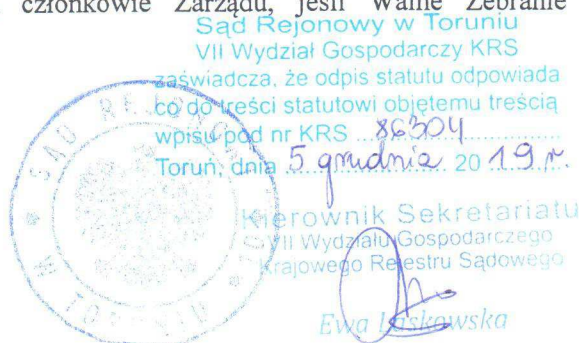 członkowie Zarządu, jeśli Walne Zebranie
Sąd Rejonowy w Toruniu
VII Wydział Gospodarczy KRS
zaświadcza, że odpis statutu odpowiada
co do treści statutowi objętemu treścią
wpisu pod nr KRS 86304
Toruń, dnia 5 grudnia 20 19 r.
Kierownik Sekretariatu
VII Wydziału Gospodarczego
Krajowego Rejestru Sądowego
Ewa Laskowska